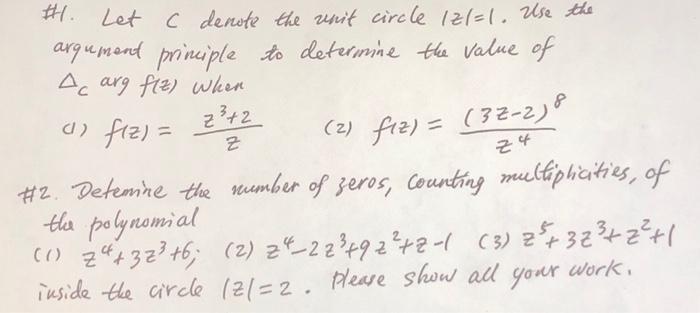 #1. Let C denote the unit circle |z|=1. Use the
argument principle to determine the value of
Δ_C arg f(z) when
(1) f(z) = (z³+2)/z (2) f(z) = (3z-2)⁸/z⁴
#2. Detemine the number of zeros, counting multiplicities, of
the polynomial
(1) z⁴+3z³+6; (2) z⁴-2z³+9z²+z-1 (3) z⁵+3z³+z²+1
inside the circle |z|=2. Please show all your work.